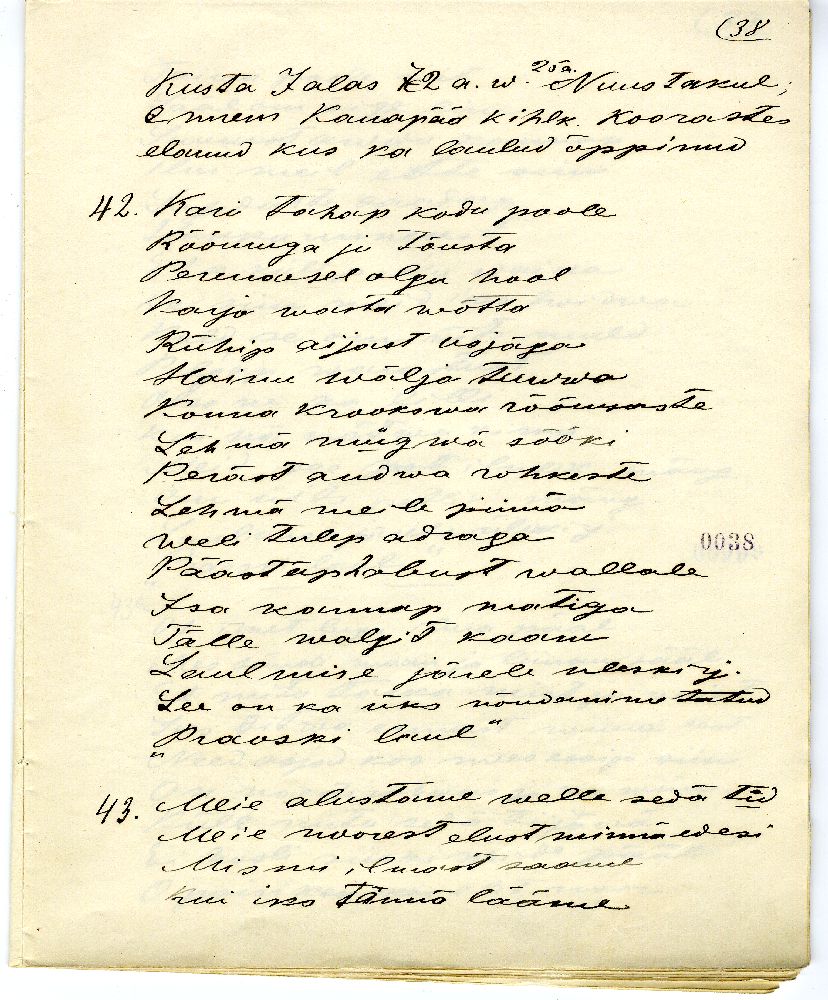 (38
Kusta Jalas 72 a. w. 25 a. Nuustakul;
ennem Kanapää kihlk. Kooraste
elanud kus ka laulud õppinud
42. Kari tahap kodu poole
Rõõmuga ju tõusta
Perenaisel olgu hool
Karja wasta wõtta
Rühip aijast üsjäga
Hainu wälja tuwwa
Konna krookswa rõõmsaste
Lehmä nüigwä sööki
Peräst andwa rohkeste
Lehmä meile piimä
Weli tulep adraga
Päästap hobust wallale
Isa kannap matiga
Tälle walgit kaaru
Laulmise järele üleskirj.
See on ka üks nõndanimetatud
"Praoski laul"
43. Meie alustame welle sedä tüd
Meie noorest elust minnä edesi
Mis nii ilmast saame
Kui iks tännä lääme
0038